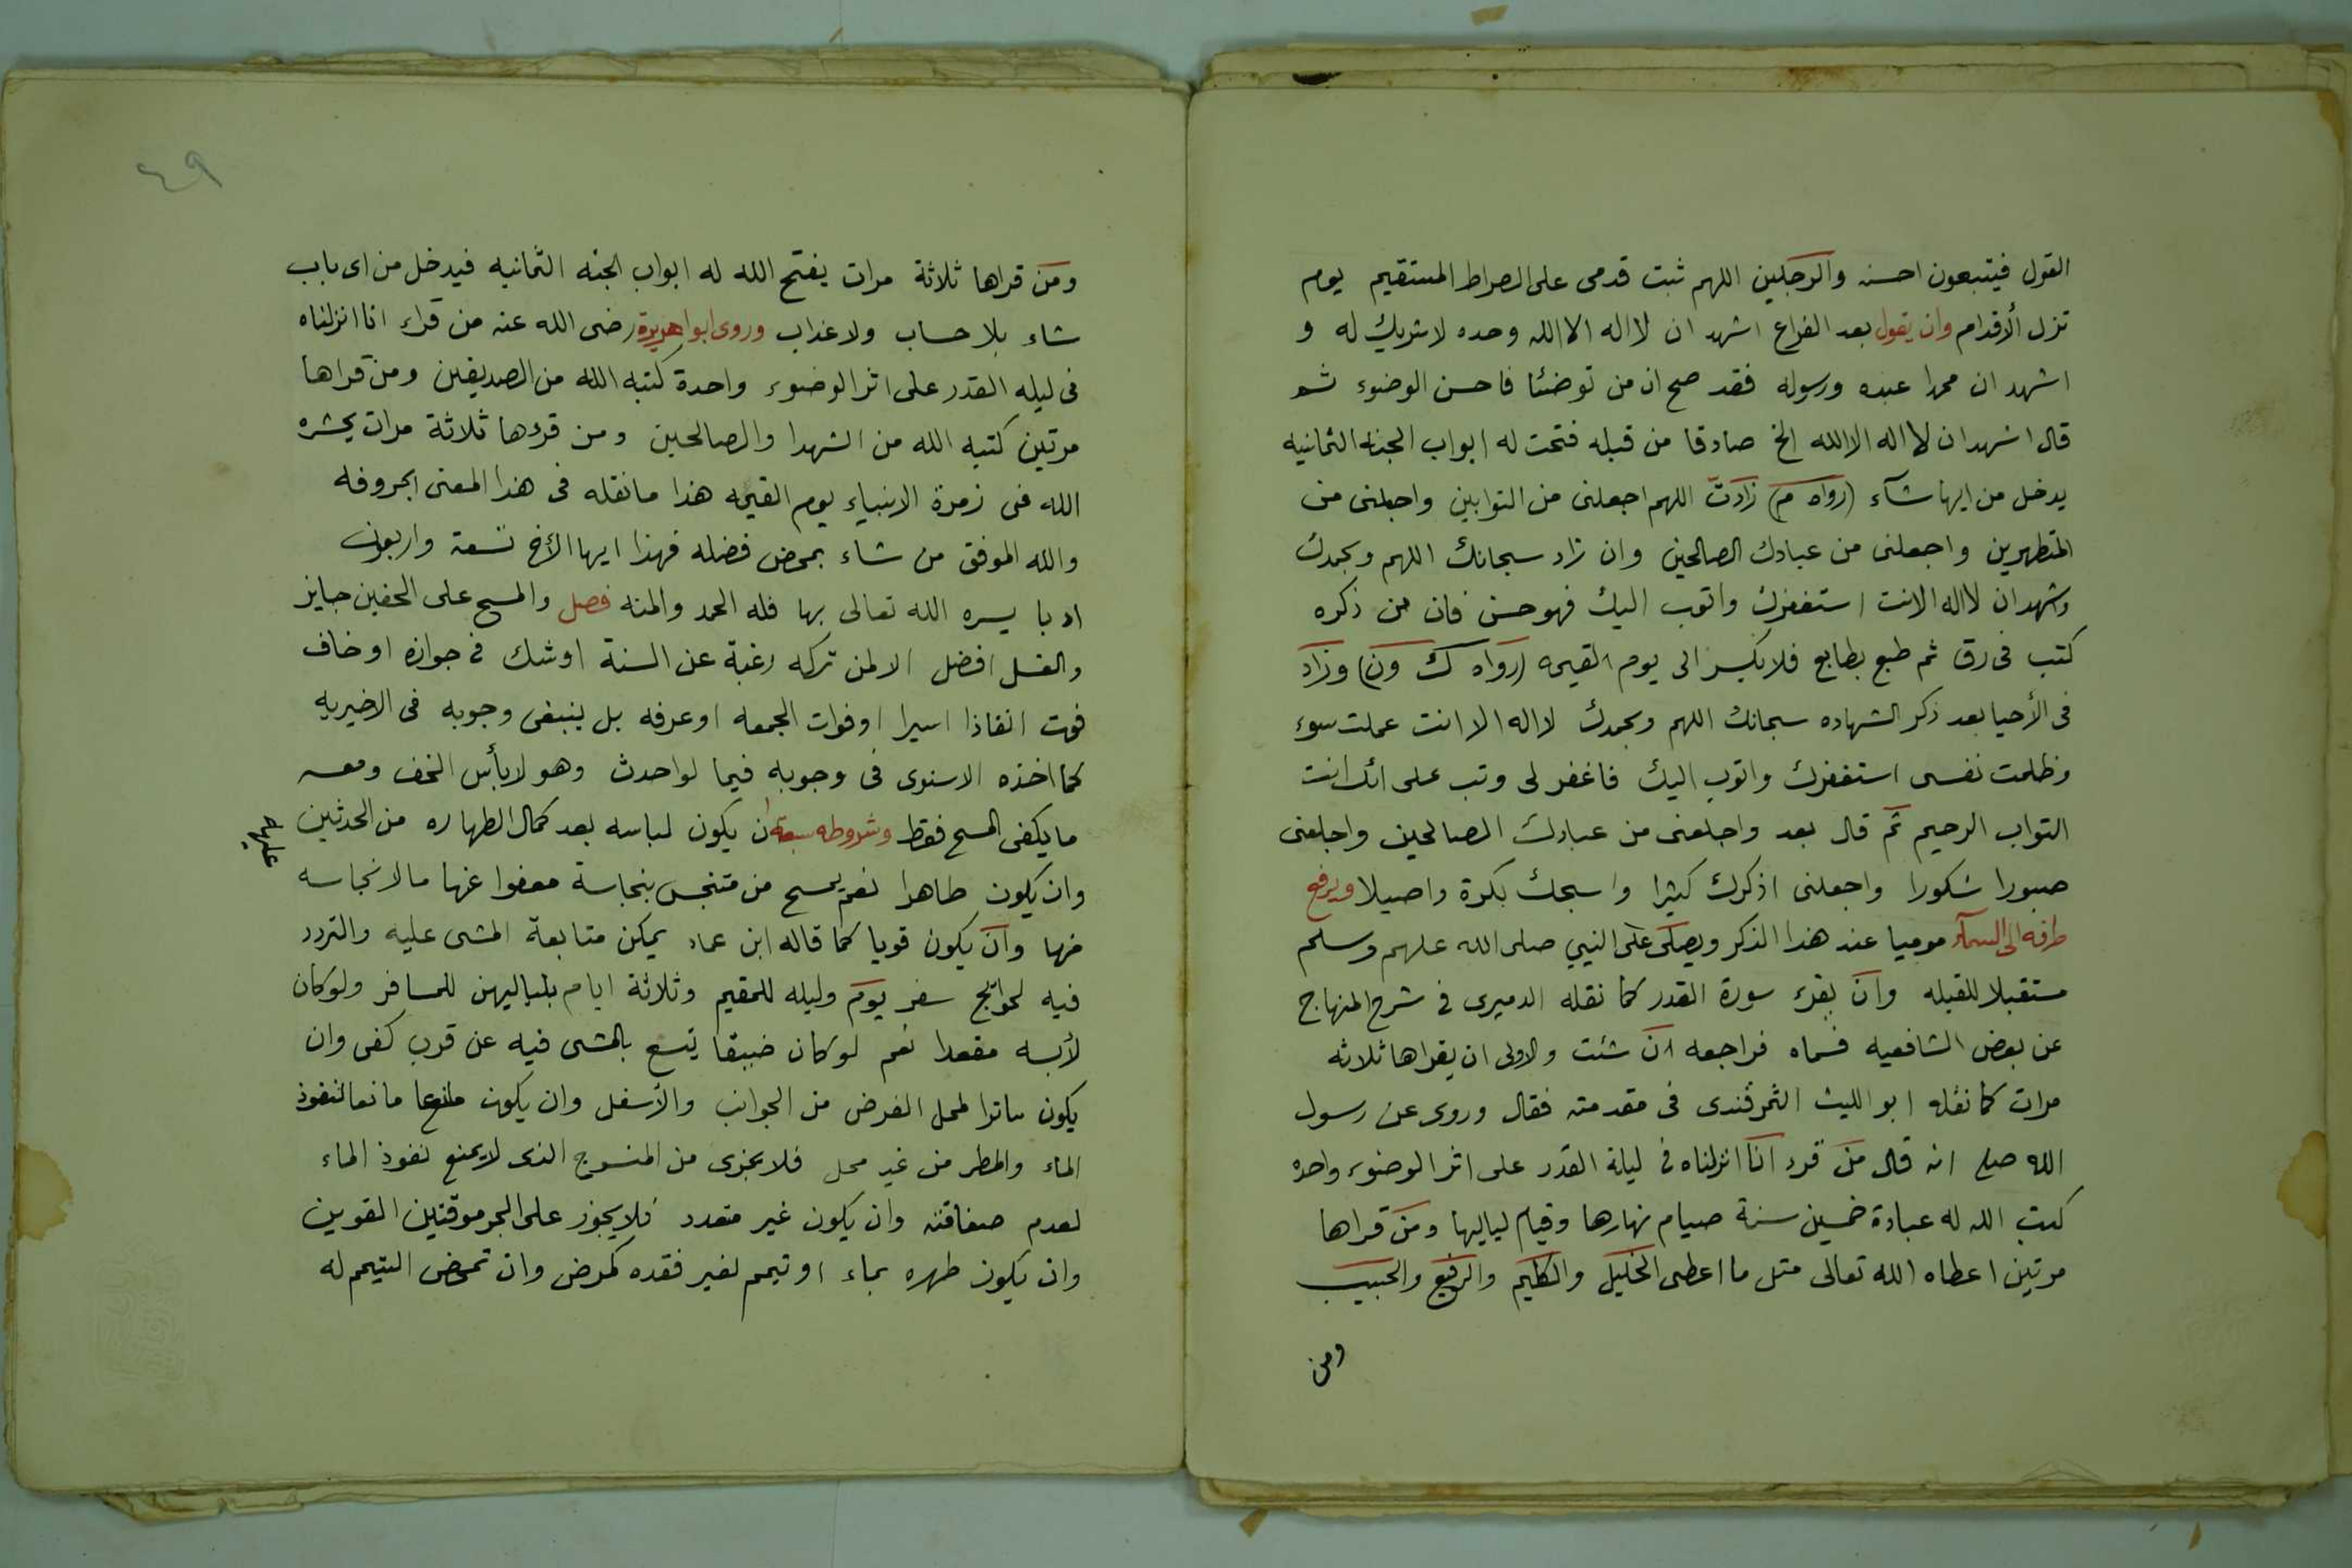 القول فيتبعون احسنه والرجلين اللهم ثبت قدمى على الصراط المستقيم يوم
تزل ألأقدام وان يقول بعد الفراغ اشهد ان لااله الاالله وحده لاشريك له و
اشهد ان محمدا عبده ورسوله فقد صح ان من توضئا فاحسن الوضوء ثم
قال اشهد ان لااله الاالله الخ صادقا من قبله فتحت له ابواب الجنه الثمانيه
يدخل من ايها شآء (رواه م) زادت اللهم اجعلنى من التوابين واجعلنى من
المتطهرين واجعلنى من عبادك الصالحين وان زاد سبحانك اللهم وبحمدك
واشهد ان لااله الاانت استغفرك واتوب اليك فهو حسن فان من ذكره
كتب فى رق ثم طبع بطابع فلا يكسر الى يوم القيمه (رواه ك ون) وزاد
فى الأحيا بعد ذكر الشهاده سبحانك اللهم وبحمدك لااله الا انت عملت سوء
وظلمت نفسى استغفرك واتوب اليك فاغفر لى وتب على انك انت
التواب الرحيم ثم قال بعد واجلعنى من عبادك الصالحين واجلعنى
صبورا شكورا واجعلنى اذكرك كثيرا واسبحك بكرة واصيلا ويرفع
طرفه الى السمآء موميا عند هذا الذكر ويصلى على النبي صلى الله عليهم وسلم
مستقبلا للقبله وان يقرء سورة القدر كما نقله الدميرى فى شرح المنهاج
عن بعض الشافعيه فسماه فراجعه ان شئت والاولى ان يقراها ثلاثه
مرات كما نقله ابو الليث الثمرقندى فى مقدمته فقال وروى عن رسول
الله صلع انه قال من قرء انا انزلناه فى ليلة القدر على اثر الوضوء واحده
كتب الله له عبادة خمسين سنة صيام نهارها وقيام لياليها ومن قراها
مرتين اعطاه الله تعالى مثل ما اعطى الخليل والكليم والرفيع والحبيب
ومن
٤٩
ومن قراها ثلاثة مرات يفتح الله له ابواب الجنه الثمانيه فيدخل من اى باب
شاء بلا حساب ولا عذاب وروى ابوا هريرة رضى الله عنه من قراء انا انزلناه
فى ليله القدر على اثر الوضوء واحدة كتبه الله من الصديقين ومن قراها
مرتين كتبه الله من الشهدا والصالحين ومن قرءها ثلاثة مرات يحشره
الله فى زمرة الانبياء يوم القيمه هذا مانقله فى هذا المعنى بحروفه
والله الموفق من شاء بمحض فضله فهذا ايها الأخ تسعة واربعون
ادبا يسره الله تعالى بها فله الحمد والمنه فصل والمسح على الخفين جايز
والغسل افضل الا لمن تركه رغبة عن السنة اوشك فى جوازه اوخاف
فوت انقاذا اسيرا اوفوات الجمعه اوعرفه بل ينبغى وجوبه فى الاخيريه
كما اخذه الاسنوى فى وجوبه فيما لواحدث وهو لابأس الخف ومعه
مايكفى المسح فقط وشروطه سبعة ان يكون لباسه بعد كمال الطهاره من الحدثين
عليه
وان يكون طاهرا نعم يمسح من متنجس بنجاسة معفوا عنها مالا نجاسه
منها وان يكون قويا كما قاله ابن عماد يمكن متابعة المشى عليه والتردد
فيه لحوايج سفر يوم وليله للمقيم وثلاثة ايام بلياليهن للمسافر ولوكان
لأبسه مقعدا نعم لوكان ضيقا يتسع بالمشى فيه عن قرب كفى وان
يكون ساترا لمحل الفرض من الجوانب والأسفل وان يكون مانعا لنفوذ
الماء والمطر من غير محل فلا يجزى من المنسوج الذى لايمنع نفوذ الماء
لعدم صفاقته وان يكون غير متعدد فلايجوز على الجرموقتين القوين
وان يكون طهره بماء اوتيمم لغير فقده كمرض وان تمحض التيمم له